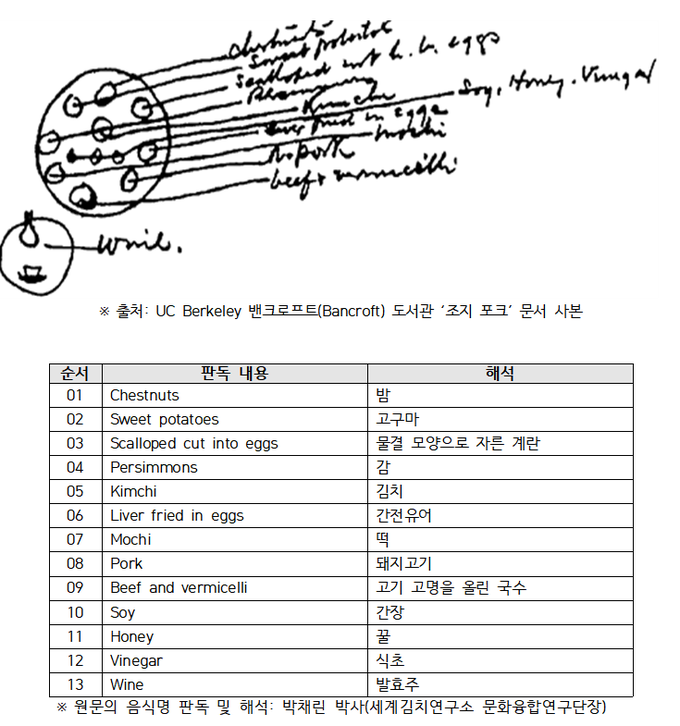 chestnuts
Sweet potatoes
scalloped cut h. b. eggs
Persimmons
Kimchi
Soy, Honey, Vinegar
liver fried in eggs
mochi
pork
beef + vermicelli
Wine.
※ 출처: UC Berkeley 밴크로프트(Bancroft) 도서관 ‘조지 포크’ 문서 사본
순서 판독 내용 해석
01 Chestnuts 밤
02 Sweet potatoes 고구마
03 Scalloped cut into eggs 물결 모양으로 자른 계란
04 Persimmons 감
05 Kimchi 김치
06 Liver fried in eggs 간전유어
07 Mochi 떡
08 Pork 돼지고기
09 Beef and vermicelli 고기 고명을 올린 국수
10 Soy 간장
11 Honey 꿀
12 Vinegar 식초
13 Wine 발효주
※ 원문의 음식명 판독 및 해석: 박채린 박사(세계김치연구소 문화융합연구단장)